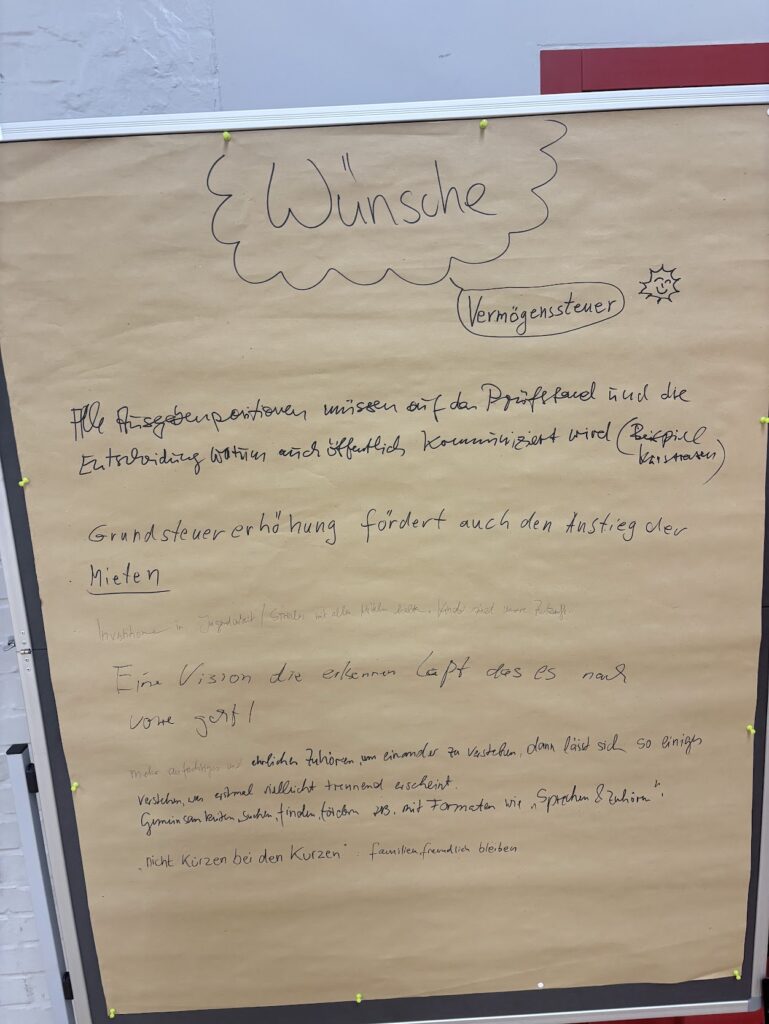 Wünsche
Vermögenssteuer
Alle Ausgabenpositionen müssen auf den Prüfstand und die
Entscheidung warum auch öffentlich kommuniziert wird (Beispiel
Grundsteuererhöhung fördert auch den Anstieg der
Mieten
Investitionen in Jugendarbeit / mit allen Kinder sind unsere Zukunft.
Eine Vision die erkennen läßt das es nach
vorne geht!
mehr aufrichtiges und ehrliches Zuhören, um einander zu verstehen, dann lässt sich so einiges
verstehen, was erstmal vielleicht trennend erscheint.
Gemeinsamkeiten, suchen, finden, fördern z.B. mit Formaten wie „Sprechen & Zuhören".
„nicht Kürzen bei den Kurzen" familienfreundlich bleiben